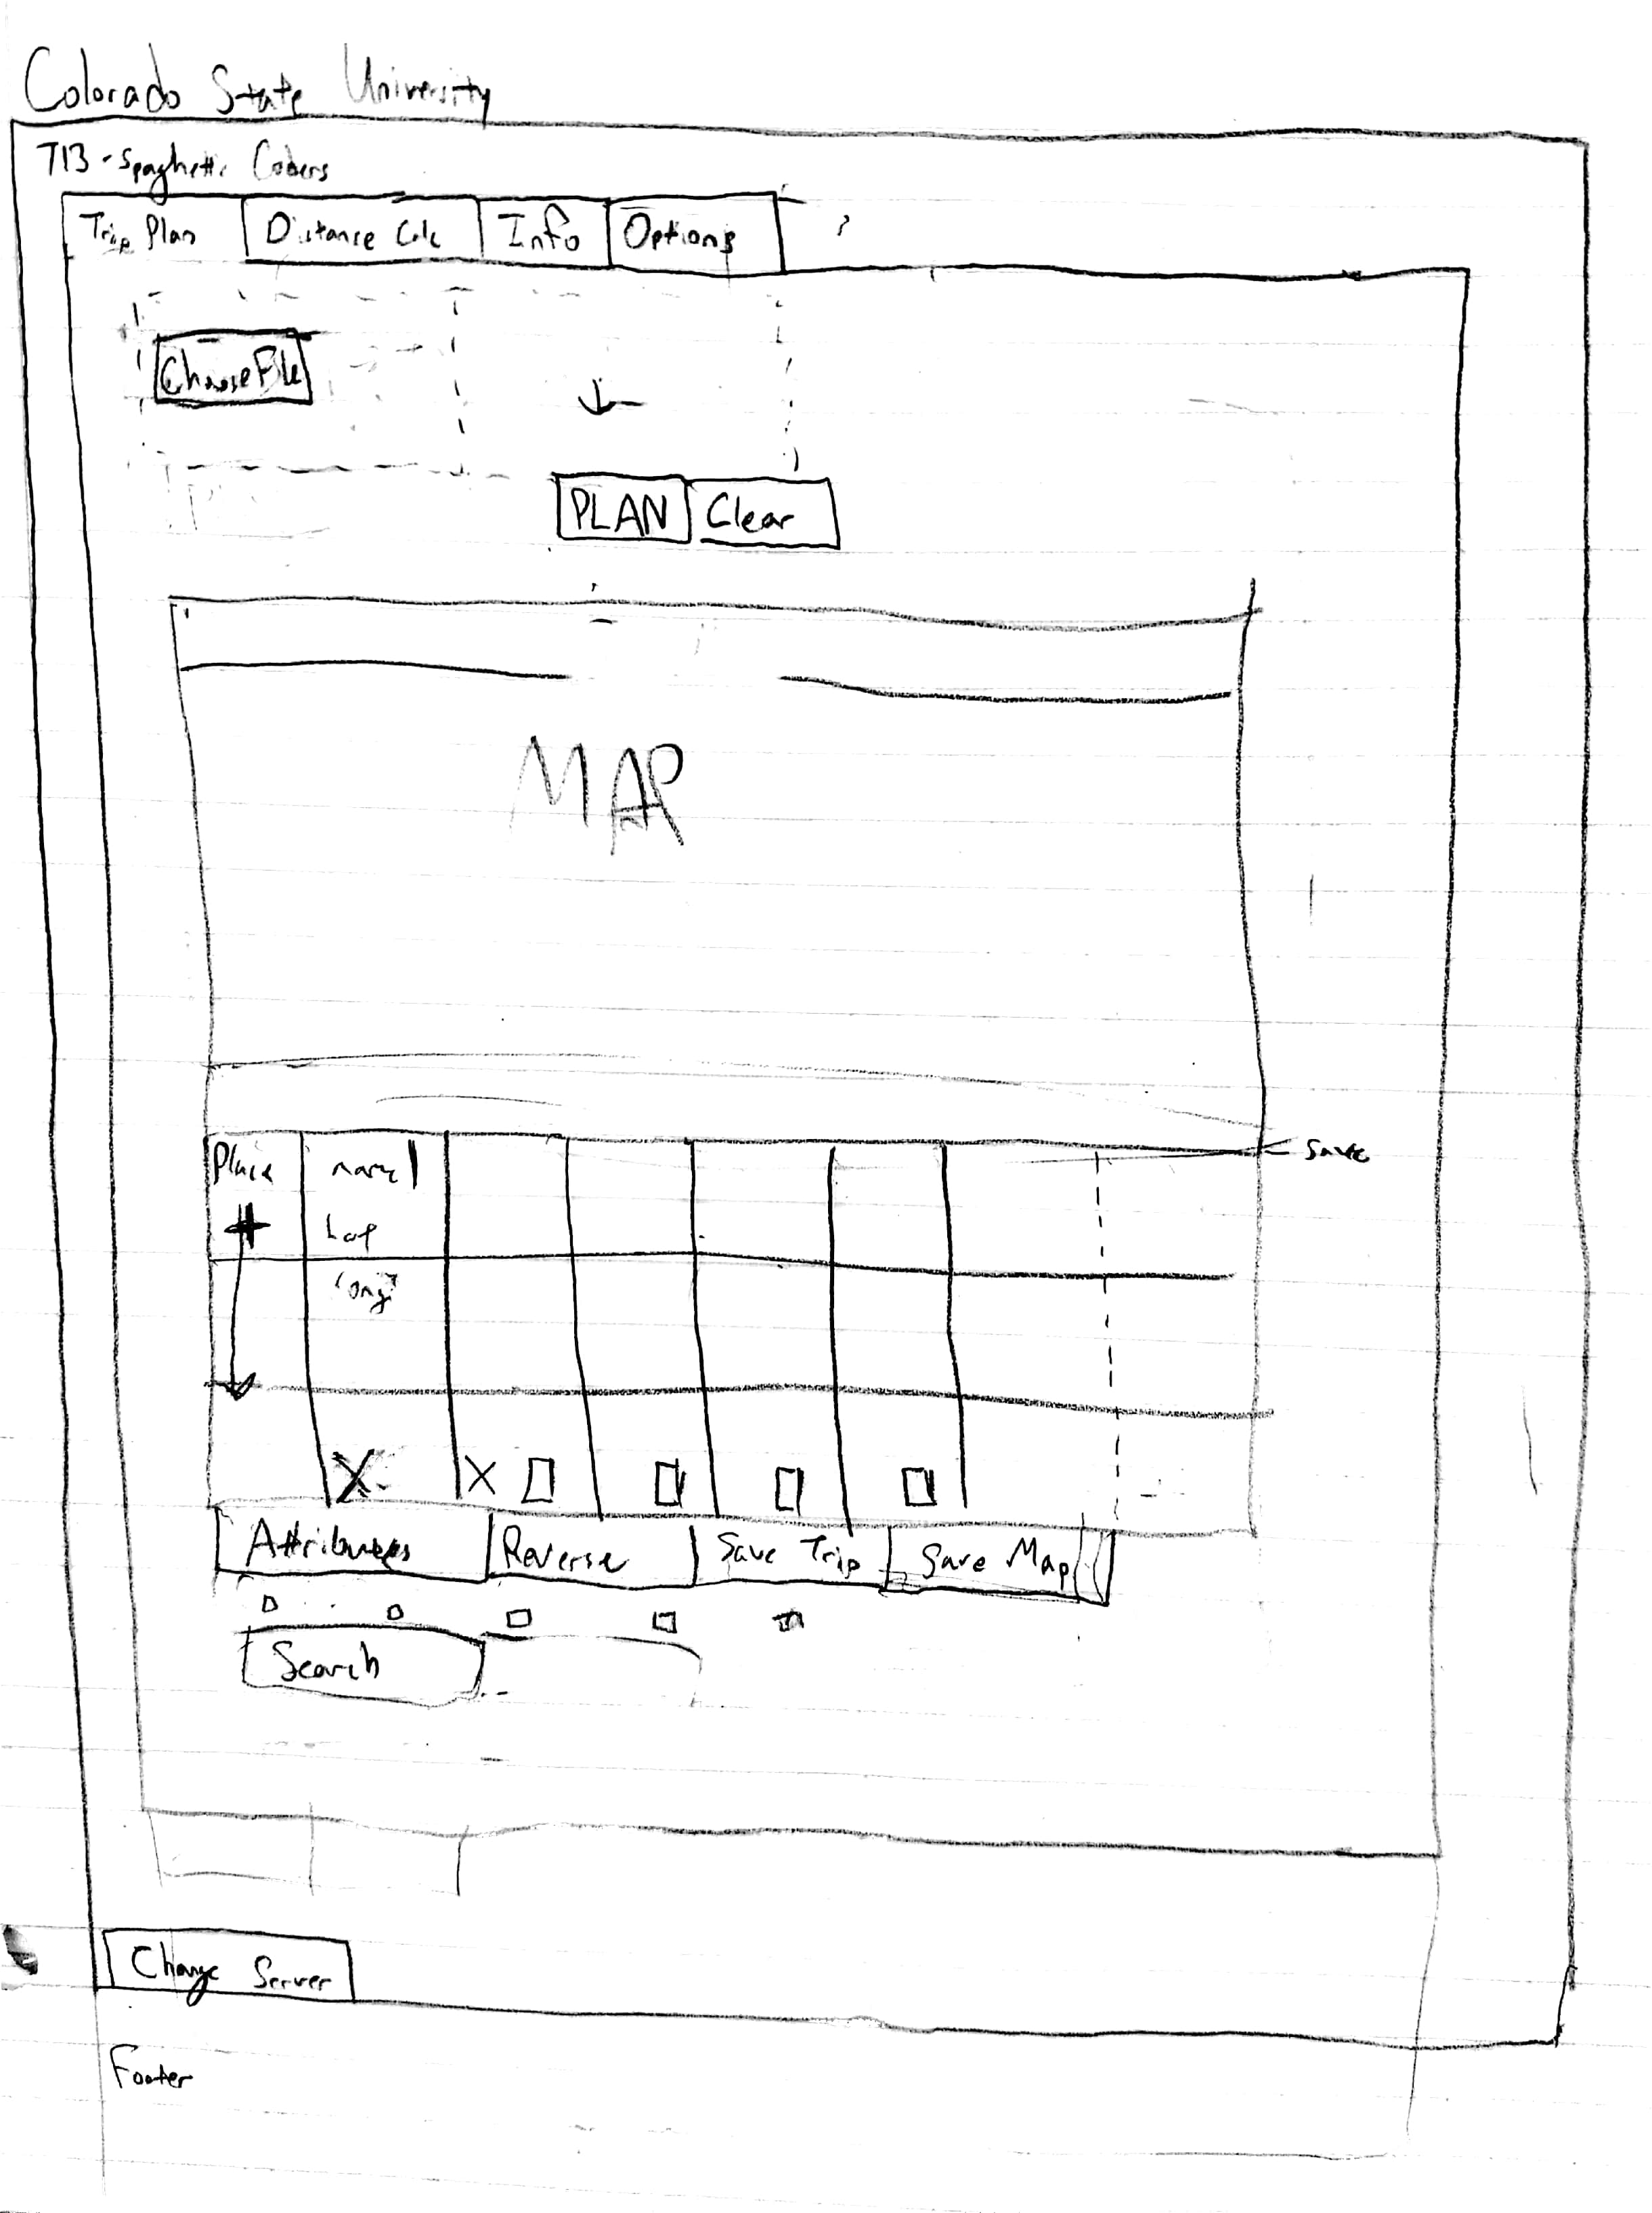 Colorado State University
T13 - Spaghetti Coders
Trip Plan Distance Calc Info Options
Choose File
PLAN Clear
MAP
Place name
# Lat
long
save
X X
Attributes Reverse Save Trip Save Map
Search
Change Server
Footer